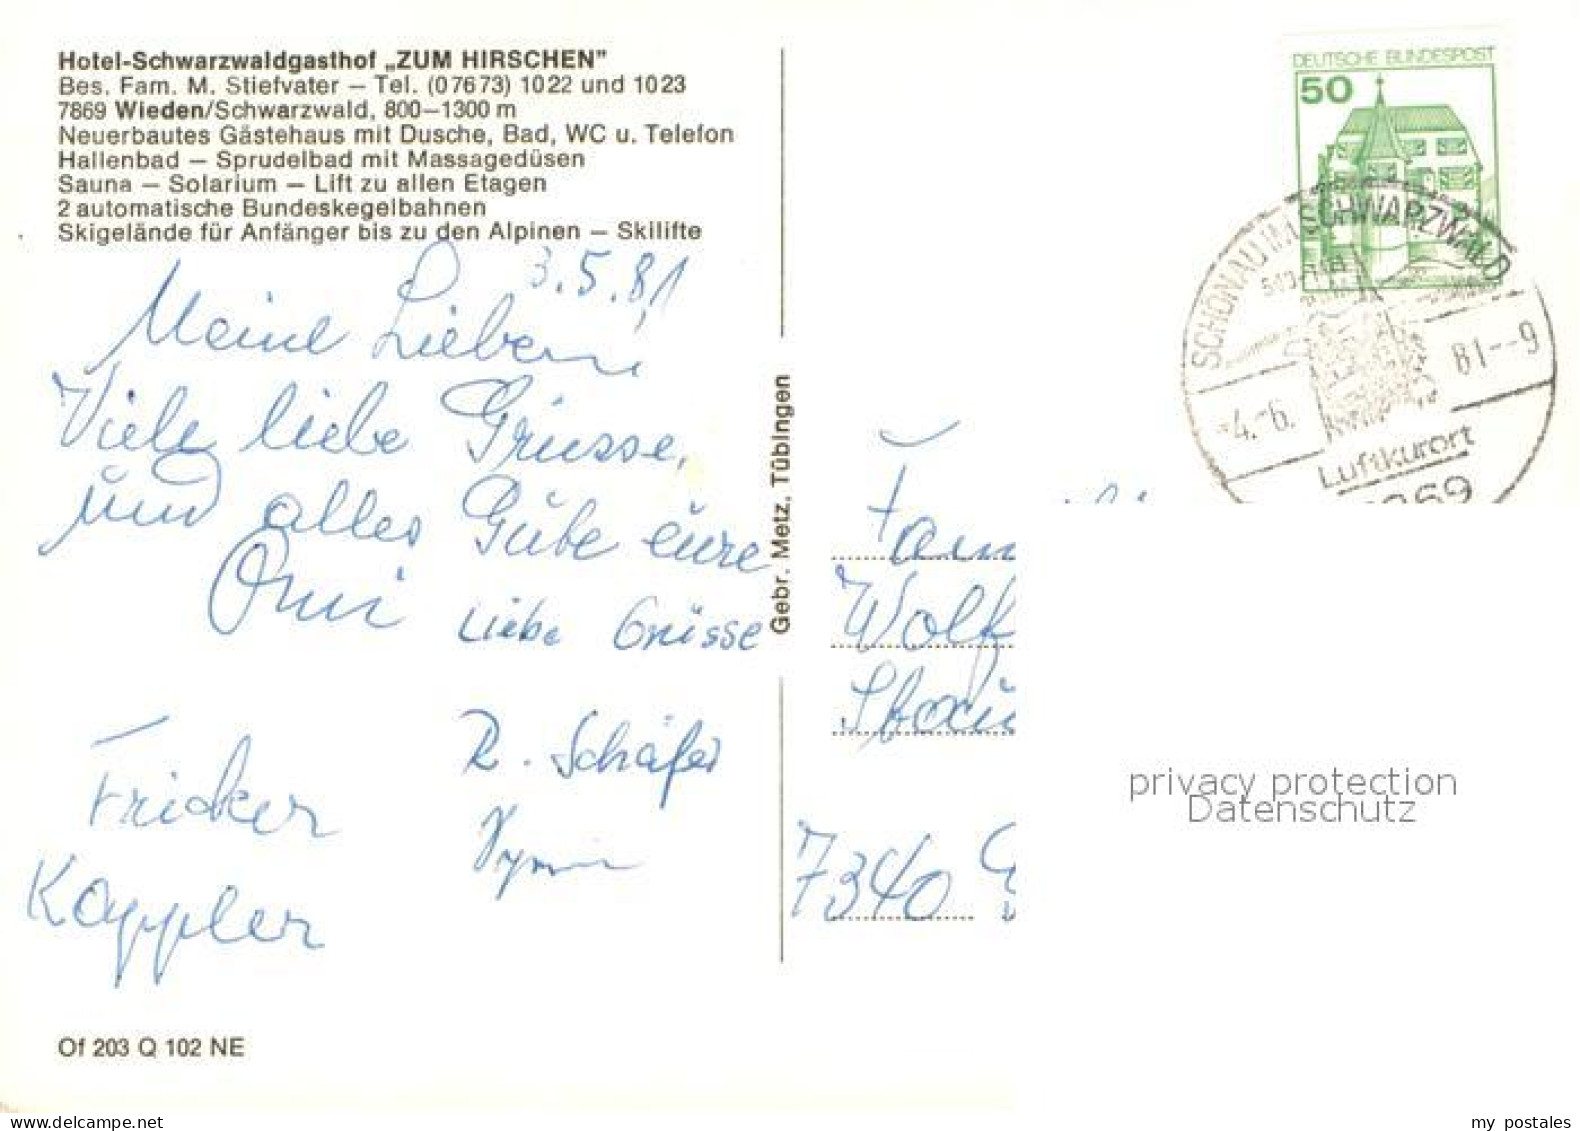 Hotel-Schwarzwaldgasthof „ZUM HIRSCHEN”
Bes. Fam. M. Stiefvater – Tel. (07673) 1022 und 1023
7869 Wieden/Schwarzwald, 800–1300 m
Neuerbautes Gästehaus mit Dusche, Bad, WC u. Telefon
Hallenbad – Sprudelbad mit Massagedüsen
Sauna – Solarium – Lift zu allen Etagen
2 automatische Bundeskegelbahnen
Skigelände für Anfänger bis zu den Alpinen – Skilifte
3.5.81
Meine Lieben!
Viele liebe Grüsse,
und alles Gute eure
Omi
Liebe Grüsse
R. Schäfer
Fricker
Kappler
Of 203 Q 102 NE
Gebr. Metz, Tübingen
DEUTSCHE BUNDESPOST
50
SCHÖNAU IM SCHWARZWALD
-4.-6.
81--9
Luftkurort
Fam
Wolf
7340 G
privacy protection
Datenschutz
my postales